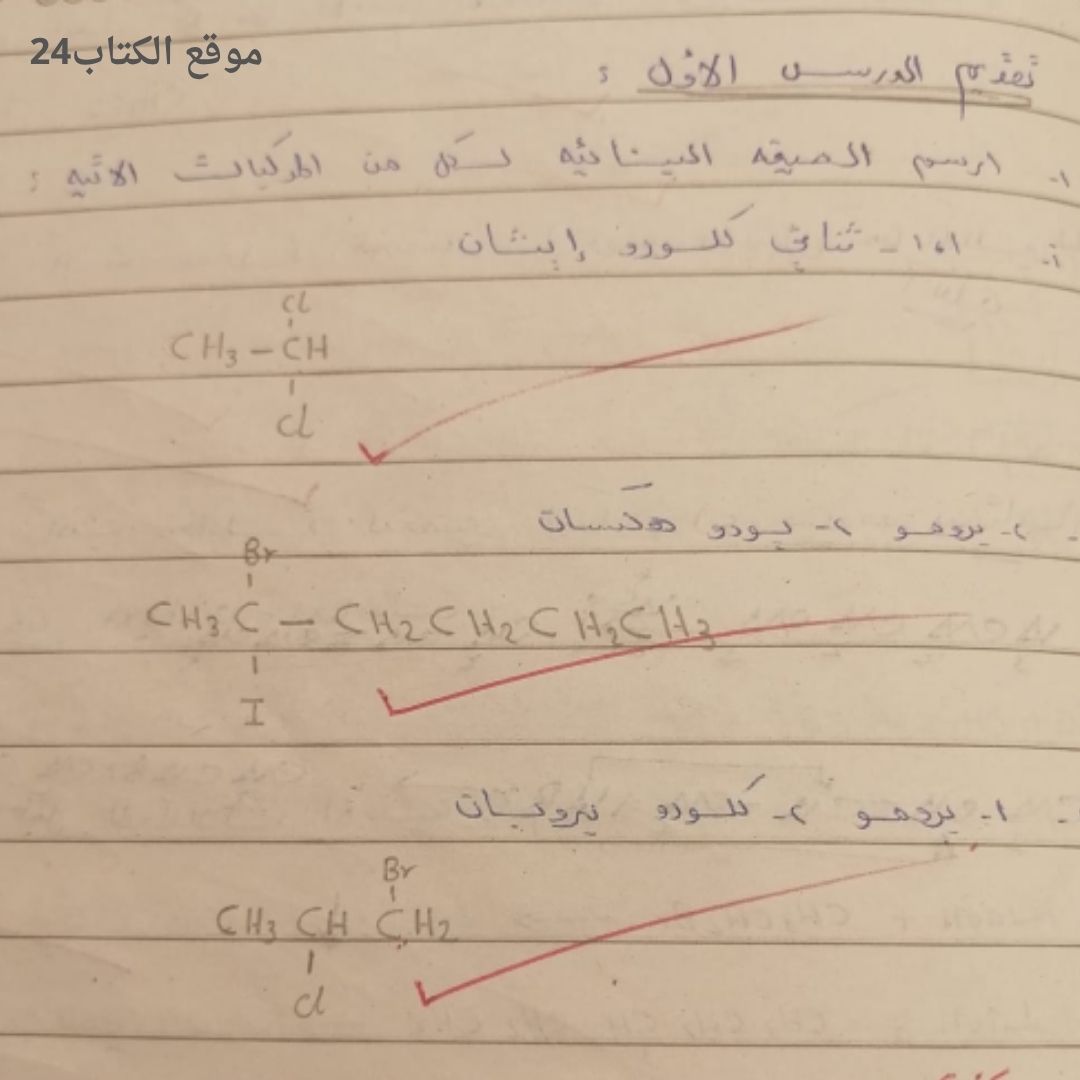 موقع الكتاب24
تقدّم الدرس الاول :
١- ارسم الصيغه البينائيه لكل من المركبات الاتيه :
أ- ١،١ - ثنائي كلورو إيثان
Cl
CH3 - CH
Cl
٢- برومو ٢- يودو هكسان
Br
CH3 C - CH2 CH2 C H2 CH3
I
١- برومو ٢- كلورو بروبان
Br
CH3 CH CH2
Cl